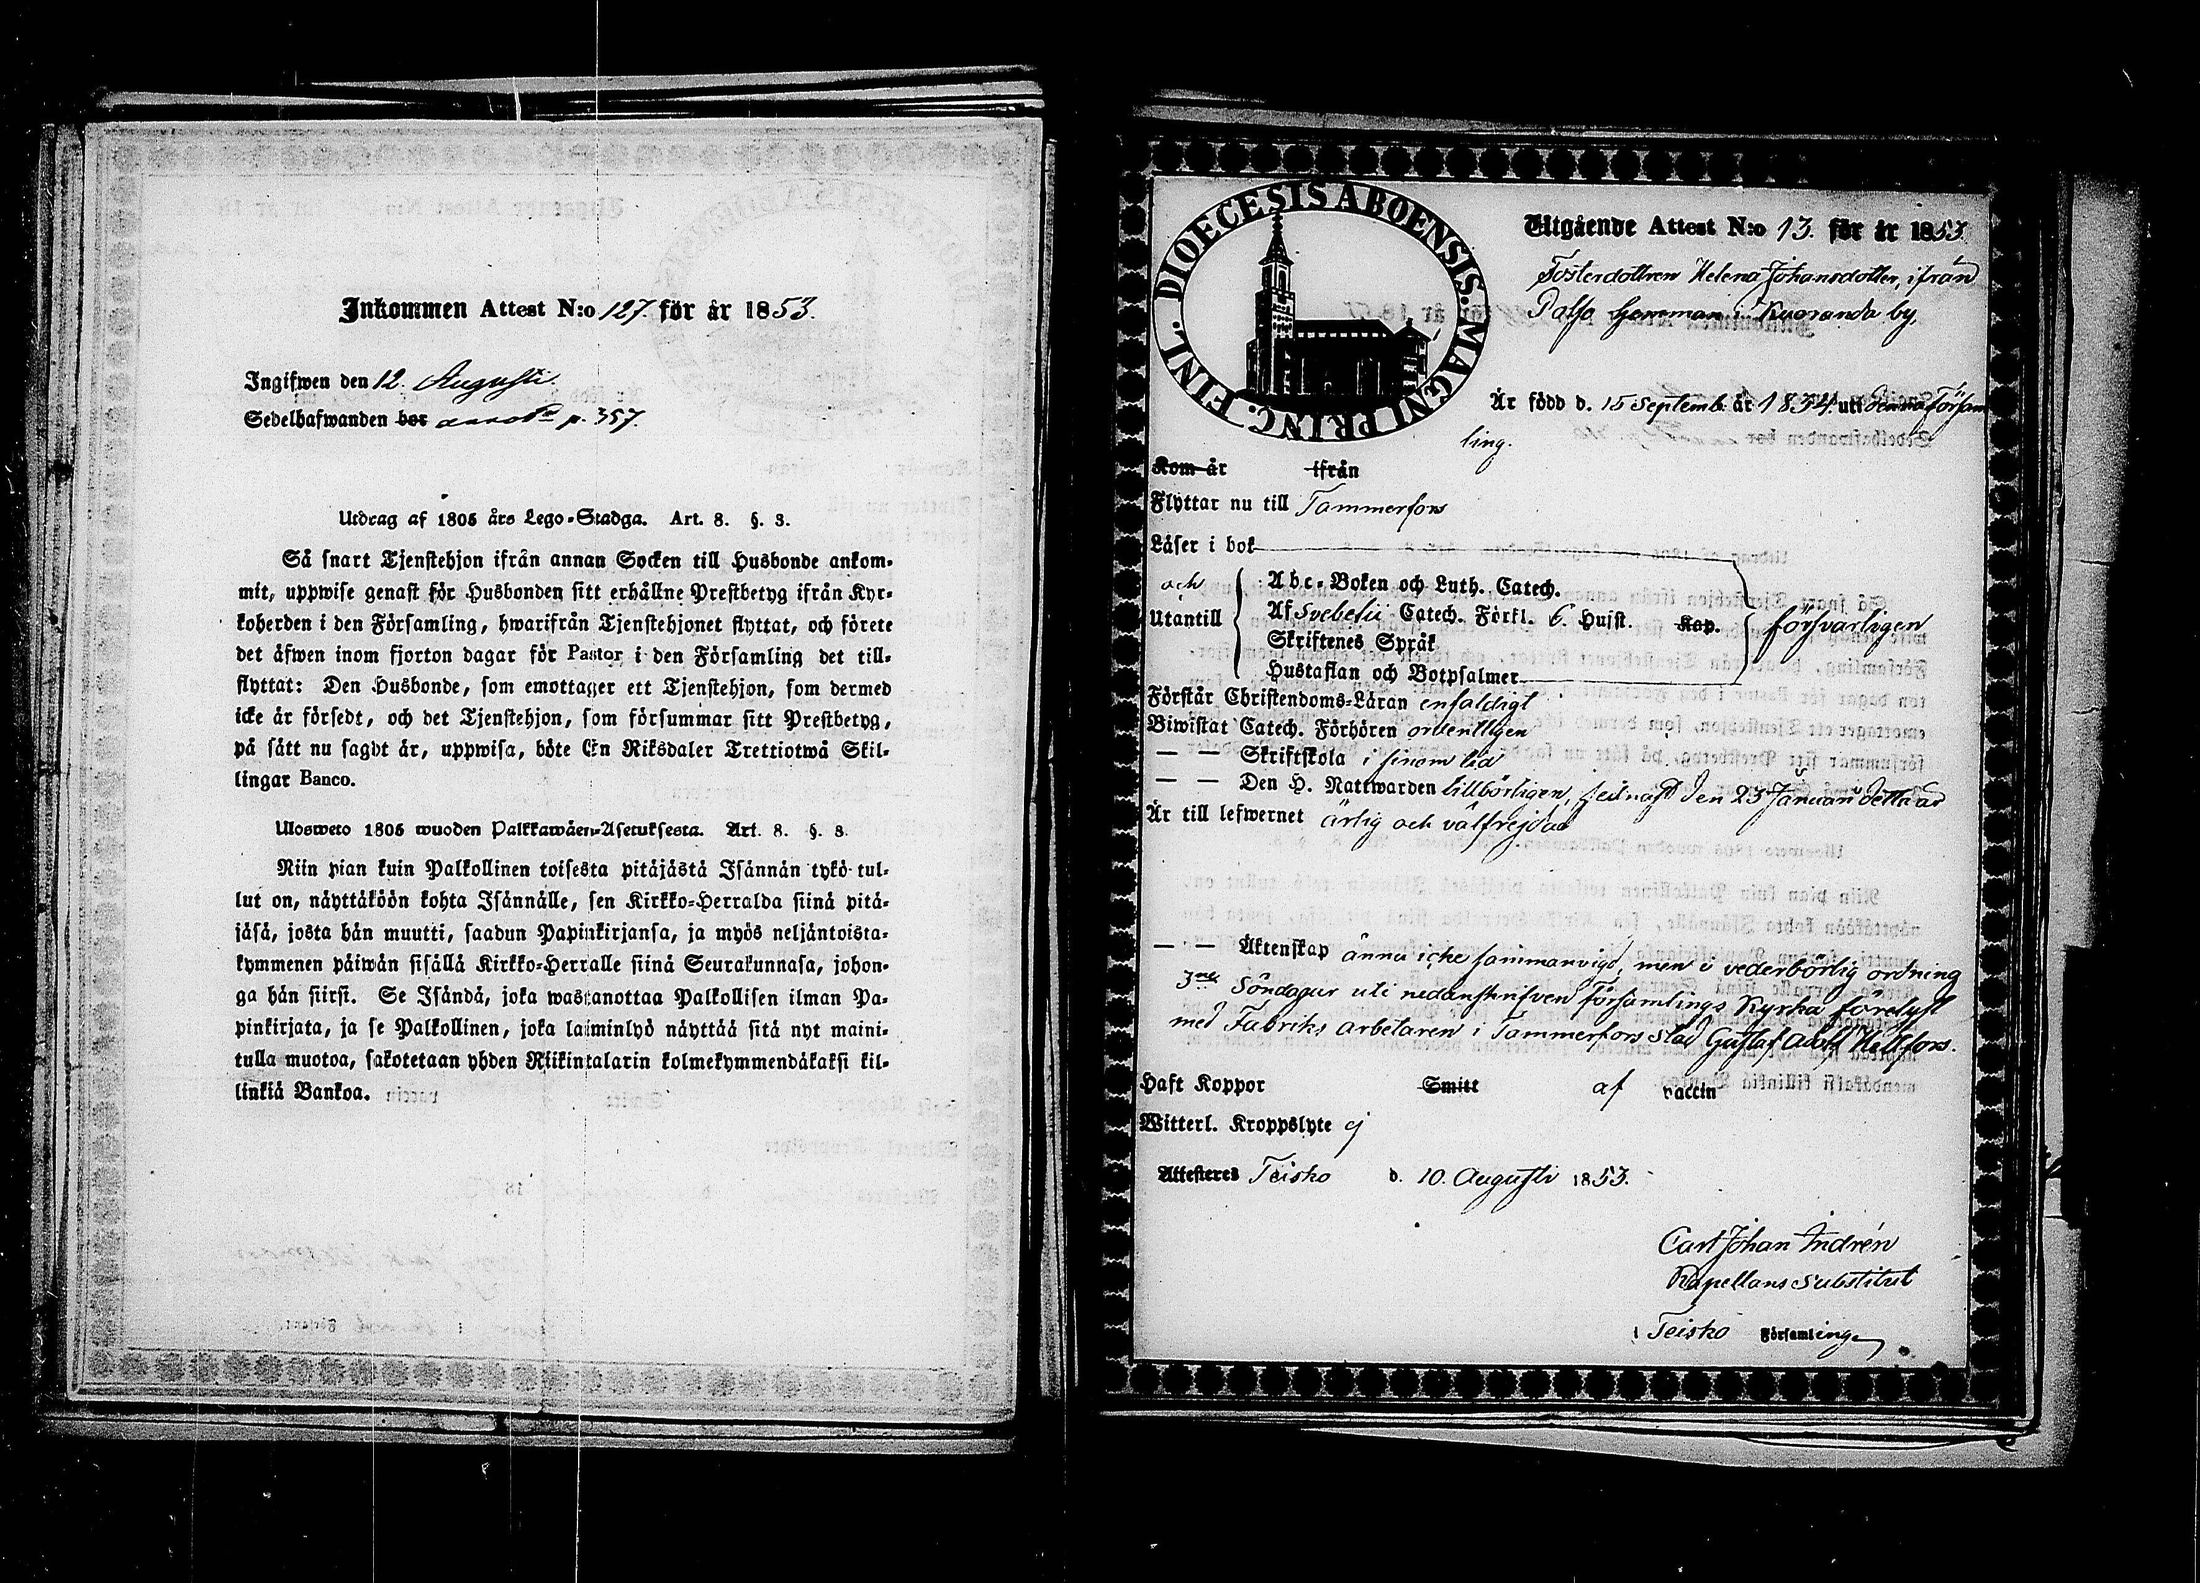 Inkommen Attest N:o 127. för år 1853.
Ingifwen den 12. Augusti.
Sedelhafwanden bor p. 357.
Utdrag af 1805 års Lego-Stadga. Art. 8. §. 3.
Så snart Tjenstehjon ifrån annan Socken till Husbonde ankom-
mit, uppwise genast för Husbonden sitt erhållne Prestbetyg ifrån Kyr-
koherden i den Församling, hwarifrån Tjenstehjonet flyttat, och förete
det äfwen inom fjorton dagar för Pastor i den Församling det till-
flyttat: Den Husbonde, som emottager ett Tjenstehjon, som dermed
icke är försedt, och det Tjenstehjon, som försummar sitt Prestbetyg,
på sätt nu sagdt är, uppwisa, böte En Riksdaler Trettiotwå Skil-
lingar Banco.
Ulosweto 1805 wuoden Palkkawäen-Asetuksesta. Art. 8. §. 3.
Niin pian kuin Palkollinen toisesta pitäjästä Isännän tykö tul-
lut on, näyttäköön kohta Isännälle, sen Kirkko-Herralda siinä pitä-
jäsä, josta hän muutti, saadun Papinkirjansa, ja myös neljäntoista-
kymmenen päiwän sisällä Kirkko-Herralle siinä Seurakunnasa, johon-
ga hän siirsi. Se Isändä, joka wastanottaa Palkollisen ilman Pa-
pinkirjata, ja se Palkollinen, joka laiminlyö näyttää sitä nyt maini-
tulla muotoa, sakotetaan yhden Riikintalarin kolmekymmendäkaksi kil-
linkiä Bankoa.
FINL. DIOECESIS ABOENSIS. MAGNI PRINC.
Utgående Attest N:o 13. för år 1853.
Fosterdottren Helena Johansdotter, ifrån
Palso hemman i Kuoranda by,
Är född d. 15 Septemb. år 1834. uti denna Försam
ling.
Kom år ifrån
Flyttar nu till Tammerfors
Läser i bok
och
Utantill
Abc-Boken och Luth. Catech.
Af Svebelii Catech. Förkl. 6. Hufst. Kap. försvarligen
Skriftenes Språk
Hustaflan och Botpsalmer
Förstår Christendoms-Läran enfaldigt
Biwistat Catech. Förhören ordentligen
— — Skriftskola i sinom tid
— — Den H. Nattwarden tillbörligen, sednast den 23 Januari detta år
Är till lefwernet ärlig och välfrejdad
— — Äktenskap ännu icke sammanvigd, men i vederbörlig ordning
3ne Söndagar uti nedanskrifven Församlings Kyrka förelyst
med Fabriks arbetaren i Tammerfors Stad Gustaf Adolf Hellfors.
Haft Koppor Smitt af vaccin
Witterl. Kroppslyte ej
Attesteres Teisko d. 10. Augusti 1853.
Carl Johan Indrén
Kapellans Substitut
i Teisko Församling